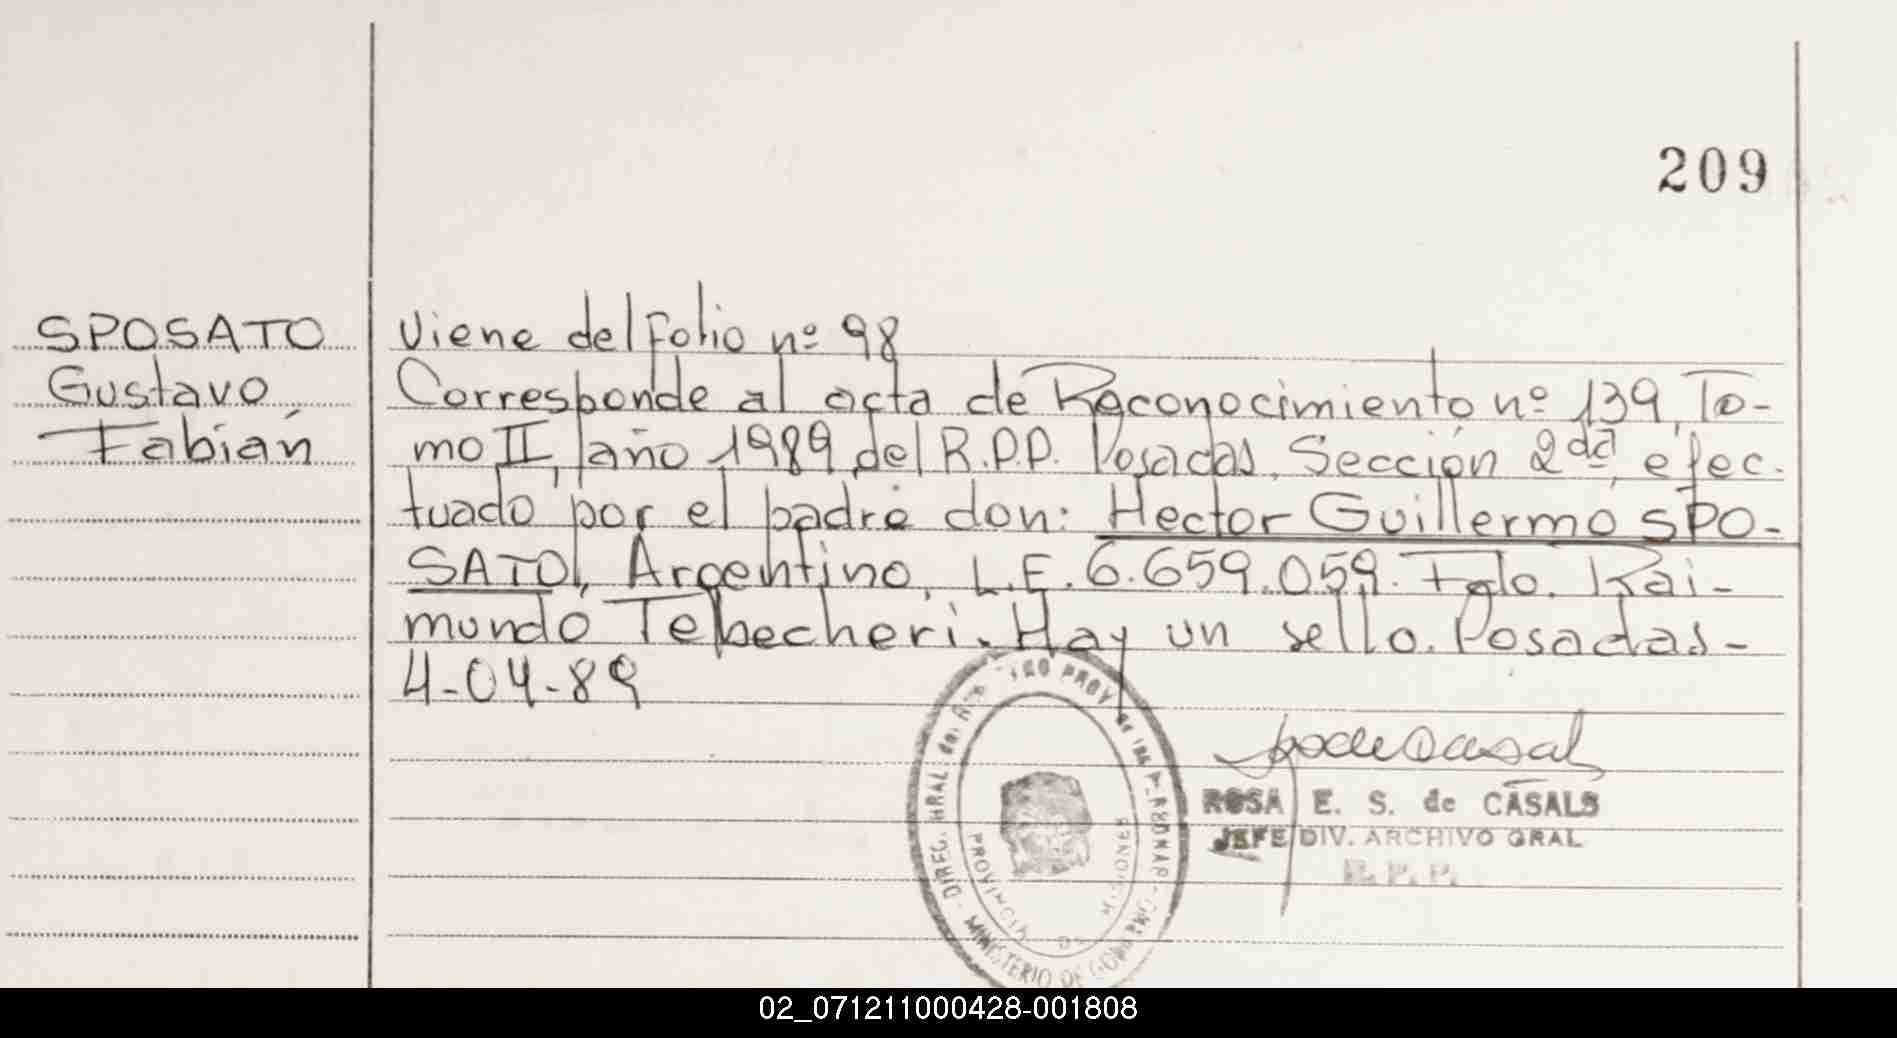 209
SPOSATO
Gustavo
Fabián
Viene del Folio nº 98
Corresponde al acta de Reconocimiento nº 139, To-
mo II, año 1989 del R.P.P. Posadas, Sección 2da, efec-
tuado por el padre don: Hector Guillermo SPO-
SATO, Argentino, L.E. 6.659.059. Fdo. Rai-
mundo Tebecheri. Hay un sello. Posadas-
4-04-89
ROSA E. S. de CASALS
JEFE DIV. ARCHIVO GRAL
R. P. P.
DIREC. GRAL. del PROV de las PERSONAS
MINISTERIO DE GOBIERNO
PROVINCIA DE MISIONES
02_071211000428-001808